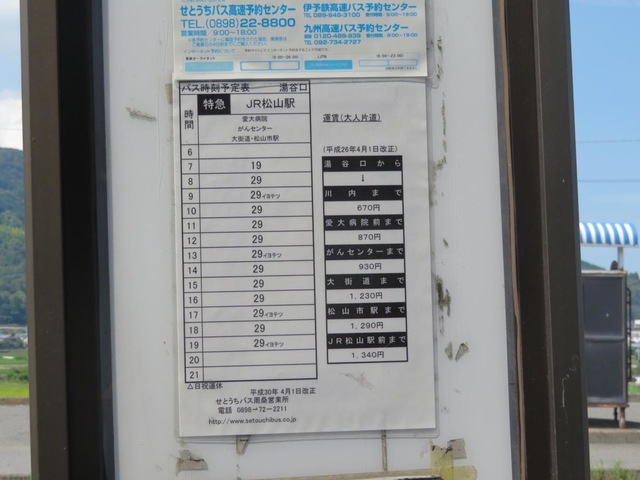 せとうちバス高速予約センター
TEL.(0898)22-8800
営業時間 9:00～18:00
伊予鉄高速バス予約センター
TEL 089-948-3100
九州高速バス予約センター
TEL 092-734-2727
バス時刻予定表 湯谷口
時間 特急 JR松山駅
愛大病院
がんセンター
大街道・松山市駅
6
7 19
8 29
9 29イヨテツ
10 29
11 29
12 29
13 29イヨテツ
14 29
15 29
16 29
17 29イヨテツ
18 29
19 29イヨテツ
20
21
△日祝運休
平成30年 4月1日改正
せとうちバス周桑営業所
電話 0898-72-2211
http://www.setouchibus.co.jp
運賃(大人片道)
(平成26年4月1日改正)
湯谷口から
↓
川内まで
670円
愛大病院前まで
870円
がんセンターまで
930円
大街道まで
1,230円
松山市駅まで
1,290円
JR松山駅前まで
1,340円